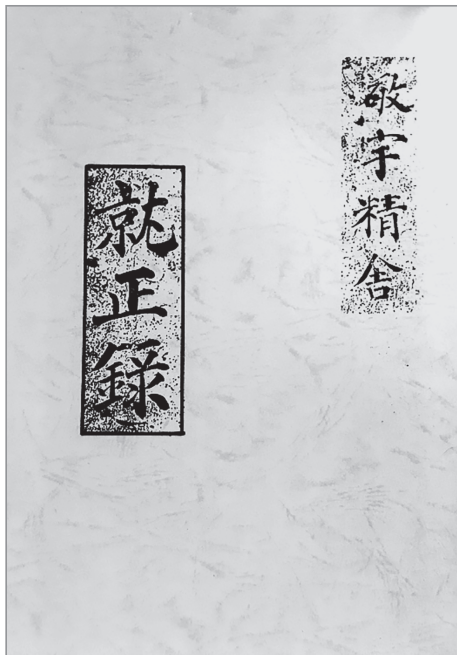 敬字精舍
就正錄